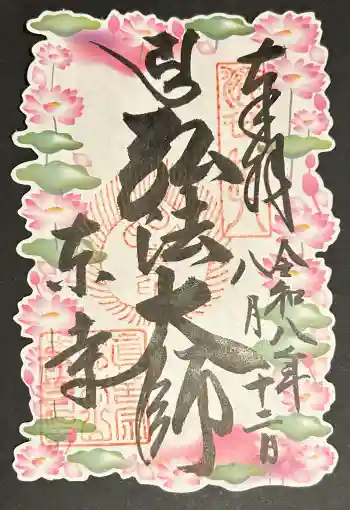 奉拝
令和八年
八月二十二日
弘法大師
東寺